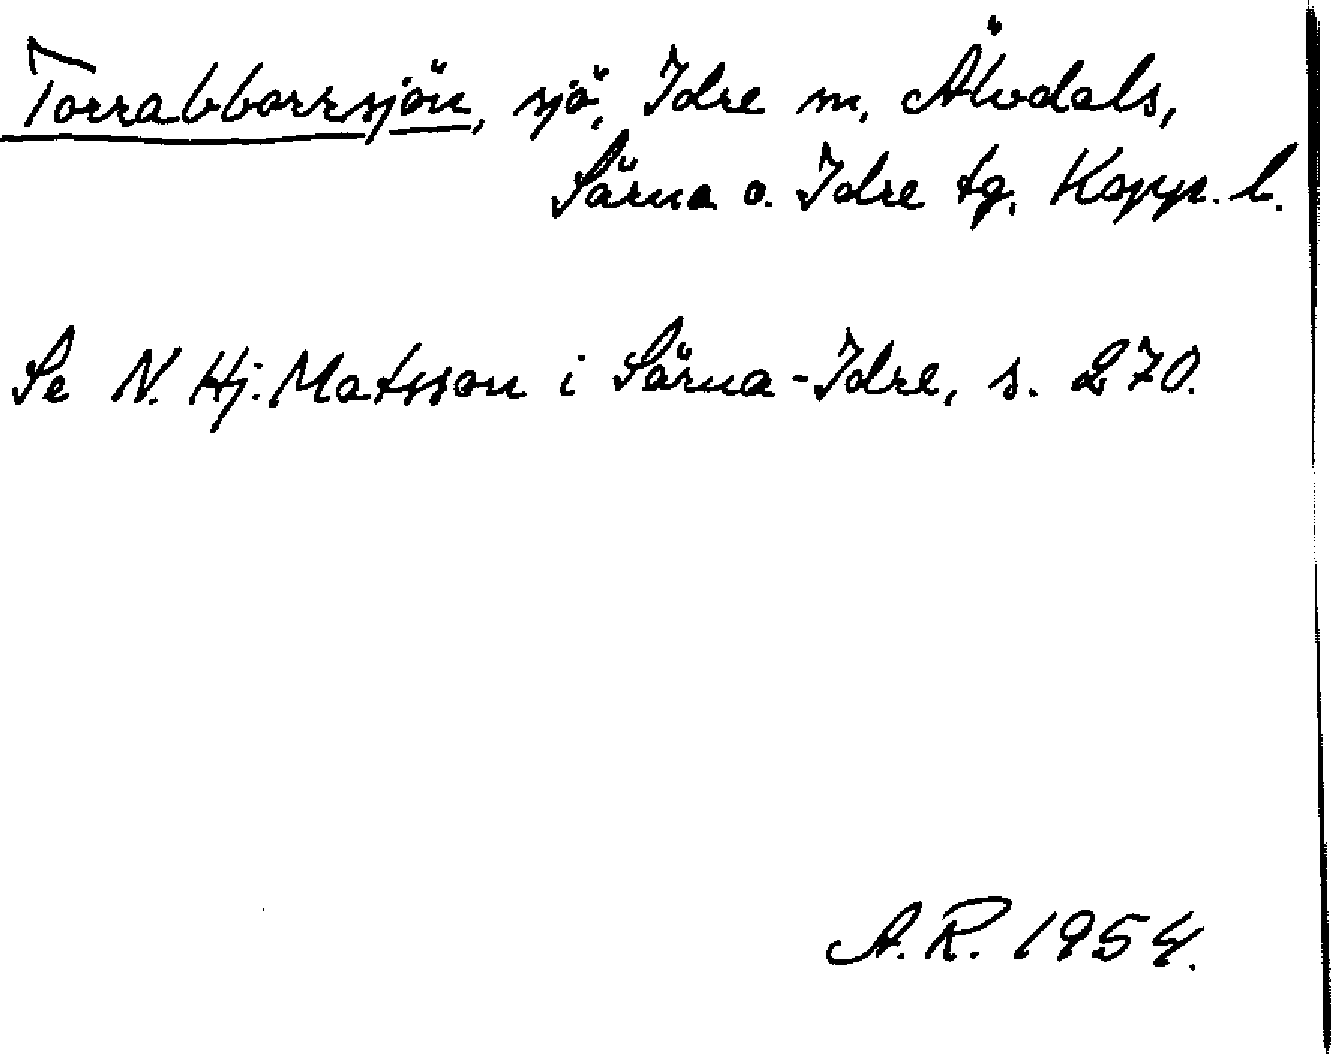 Torrabborrsjön, sjö, Idre sn, Älvdals,
Särna o. Idre tg, Kopp. l.
Se N. Hj. Matsson i Särna-Idre, s. 270.
A.R. 1954.